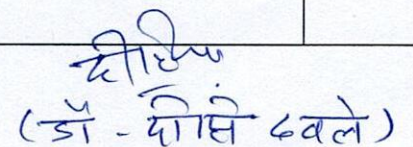 दीप्ति
(डॉ - दीप्ति ढवले)